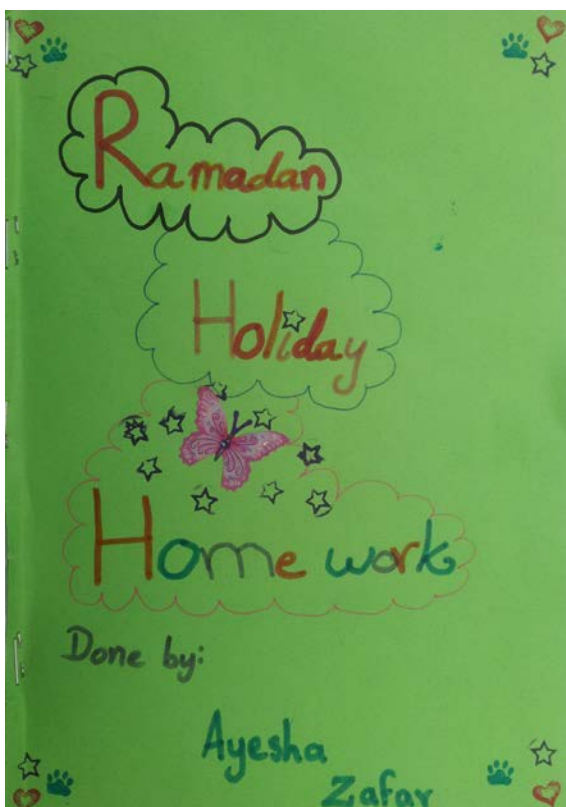 Ramadan
Holiday
Home work
Done by:
Ayesha
Zafar